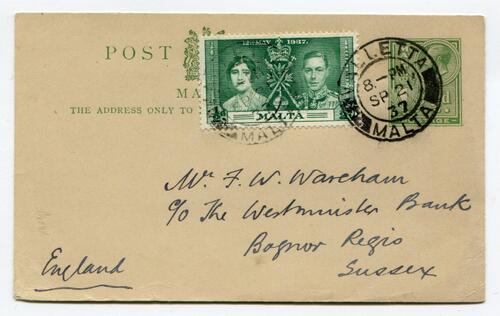 POST
MA
THE ADDRESS ONLY TO
12TH MAY 1937.
½d
MALTA
VALLETTA
8-PM
SP 21
37
MALTA
MALTA
Mr F. W. Wareham
c/o The Westminster Bank
Bognor Regis
Sussex
England